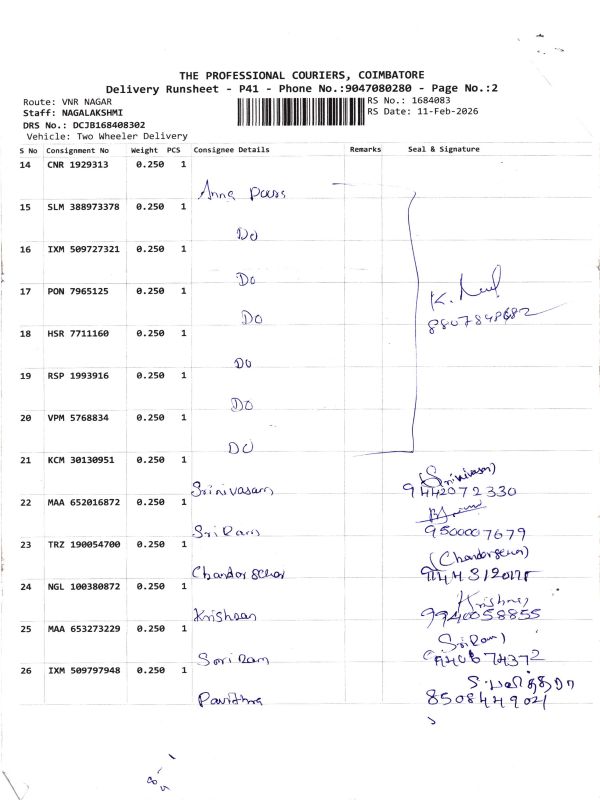 THE PROFESSIONAL COURIERS, COIMBATORE
Delivery Runsheet - P41 - Phone No.:9047080280 - Page No.:2
Route: VNR NAGAR
RS No.: 1684083
Staff: NAGALAKSHMI
RS Date: 11-Feb-2026
DRS No.: DCJB168408302
Vehicle: Two Wheeler Delivery
S No Consignment No Weight PCS Consignee Details Remarks Seal & Signature
14 CNR 1929313 0.250 1
Anna
15 SLM 388973378 0.250 1
Do
16 IXM 509727321 0.250 1
Do
17 PON 7965125 0.250 1
Do
K.
8807848682
18 HSR 7711160 0.250 1
Do
19 RSP 1993916 0.250 1
Do
20 VPM 5768834 0.250 1
Do
21 KCM 30130951 0.250 1
Srinivasan (Srinivasan)
9442072330
22 MAA 652016872 0.250 1
Sri Ram
9500007679
23 TRZ 190054700 0.250 1
24 NGL 100380872 0.250 1
Krishnan
9940058855
25 MAA 653273229 0.250 1
Sri Ram
26 IXM 509797948 0.250 1
Pavithra
S. பவித்ரா